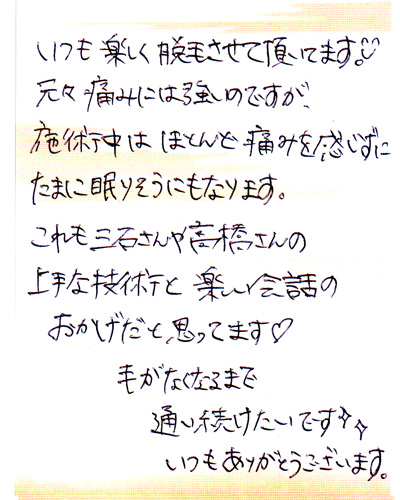 いつも楽しく脱毛させて頂いてます。
元々痛みには強いのですが、
施術中はほとんど痛みを感じずに
たまに眠りそうにもなります。
これも三石さんや高橋さんの
上手な技術と楽しい会話の
おかげだと、思ってます♡
毛がなくなるまで
通い続けたいです✧✧
いつもありがとうございます。